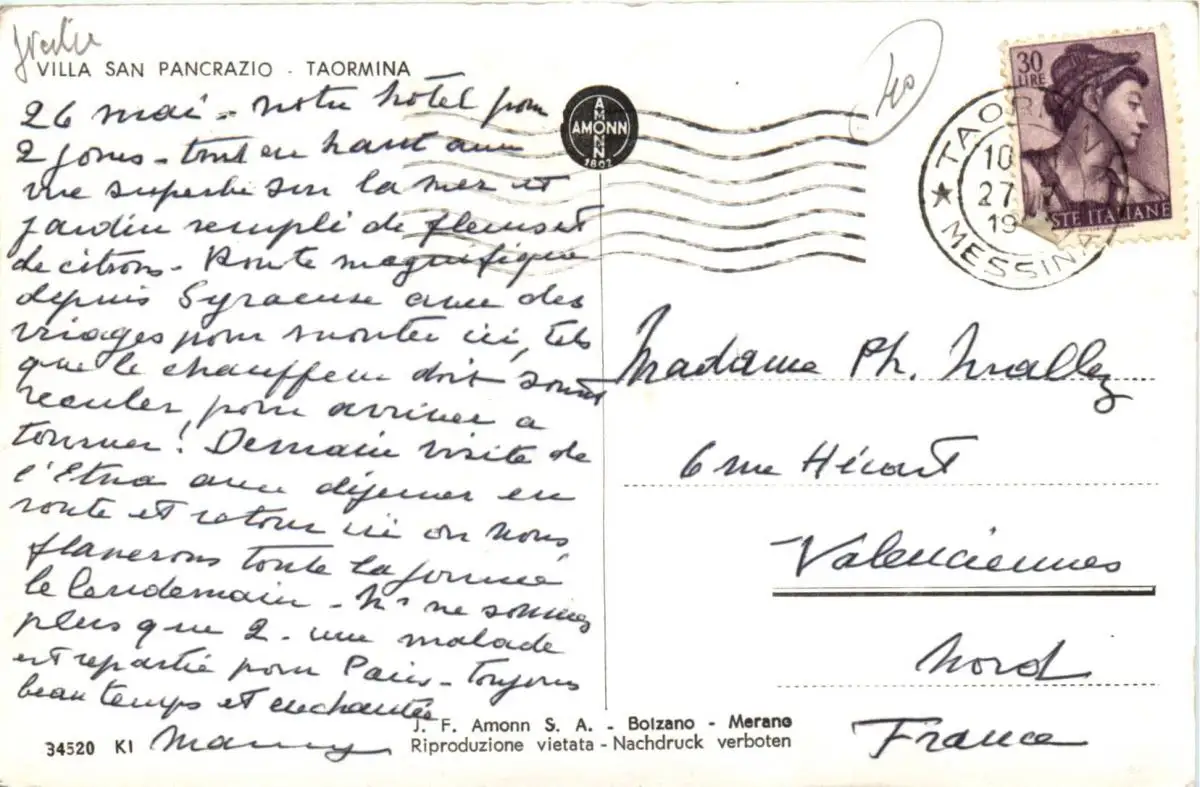 Sicile
VILLA SAN PANCRAZIO - TAORMINA
26 mai - notre hôtel pour
2 jours - tout en haut avec
vue superbe sur la mer et
jardin rempli de fleurs et
de citrons - Route magnifique
depuis Syracuse avec des
virages pour monter ici, tels
que le chauffeur doit souvent
reculer, pour arriver à
tourner ! Demain visite de
l'Etna avec déjeuner en
route et retour ici où nous
flanerons toute la journée
le lendemain - Ns ne sommes
plus que 2 - une malade
est repartie pour Paris - toujours
beau temps et enchantée
AMONN
AMONN
1802
40
30
LIRE
POSTE ITALIANE
TAORMINA
10
27
19
MESSINA
Madame Ph. Mallez
6 rue Hécart
Valenciennes
Nord
France
J. F. Amonn S. A. - Bolzano - Merano
34520 KI
Riproduzione vietata - Nachdruck verboten